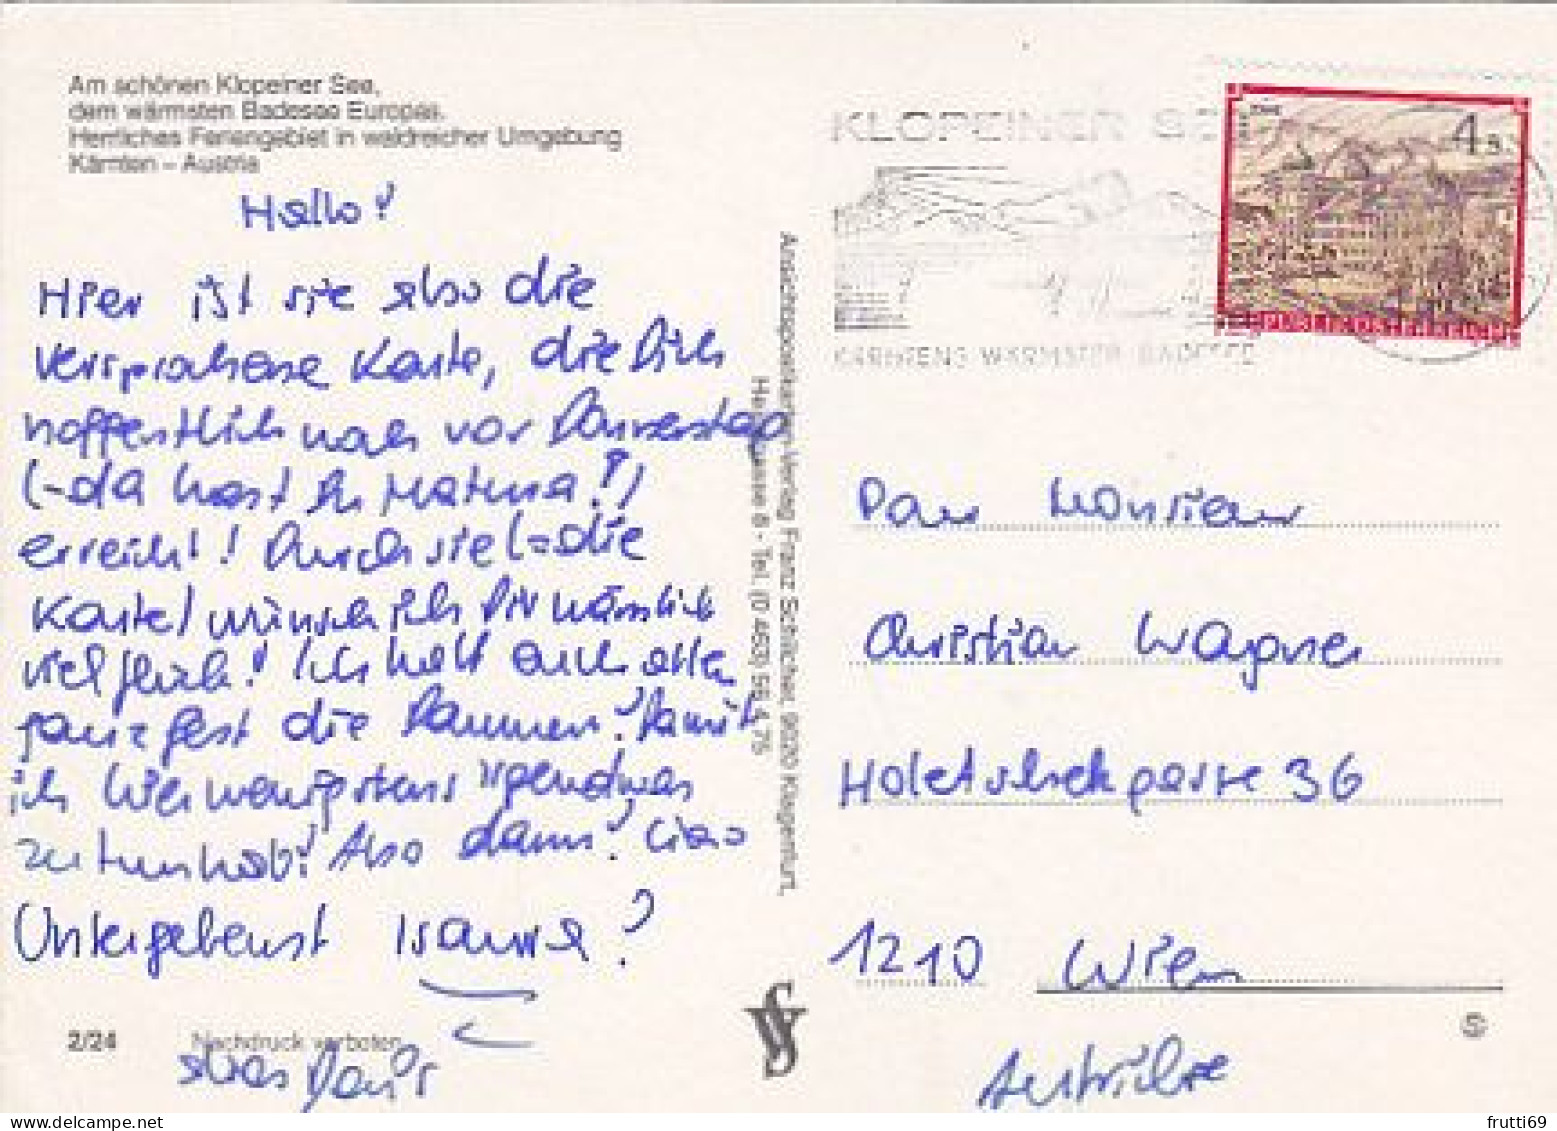 Am schönen Klopeiner See,
dem wärmsten Badesee Europas.
Herrliches Feriengebiet in waldreicher Umgebung
Kärnten – Austria
Hallo!
Hier ist sie also die
versprochene Karte, die Dich
hoffentlich noch vor Donnerstag
(-da hast Du Matura!)
erreicht! Durch sie (=die
Karte) wünsch ich Dir nämlich
viel Glück! Ich halt auch allen
ganz fest die Daumen! Damit
ich wenigstens irgendwas
zu tun hab! Also dann! Ciao
Untergebenst
2/24
Nachdruck verboten
alias
Ansichtspostkarten-Verlag Franz Schilcher, 9020 Klagenfurt,
8 · Tel. (0 463) 56 4 75
KLOPEINER SEE
KÄRNTENS WÄRMSTER BADESEE
4 S
REPUBLIK ÖSTERREICH
Monsieur
Christian Wagner
36
1210 Wien
Autriche
frutti69